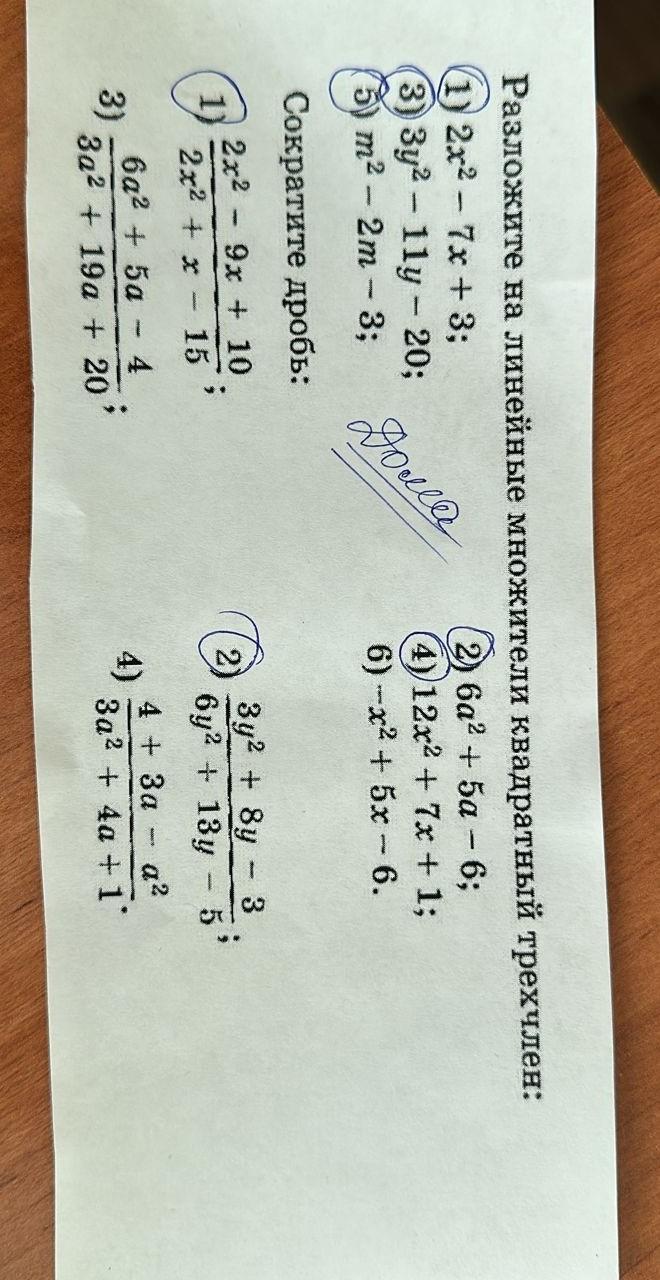 Разложите на линейные множители квадратный трехчлен:
1) 2x² − 7x + 3; 2) 6a² + 5a − 6;
3) 3y² − 11y − 20; 4) 12x² + 7x + 1;
5) m² − 2m − 3; 6) −x² + 5x − 6.
Дома
Сократите дробь:
1) (2x² − 9x + 10)/(2x² + x − 15); 2) (3y² + 8y − 3)/(6y² + 13y − 5);
3) (6a² + 5a − 4)/(3a² + 19a + 20); 4) (4 + 3a − a²)/(3a² + 4a + 1).